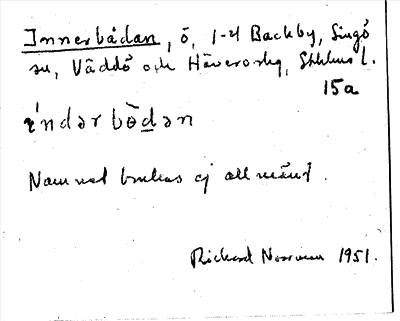 Innerbådan, ö, 1-4 Backby, Singö
sn, Väddö och Häverö skg, Sthlms l.
15a
ɩ́ndər bò̱dən
Namnet brukas ej allmänt.
Richard Norrman 1951.